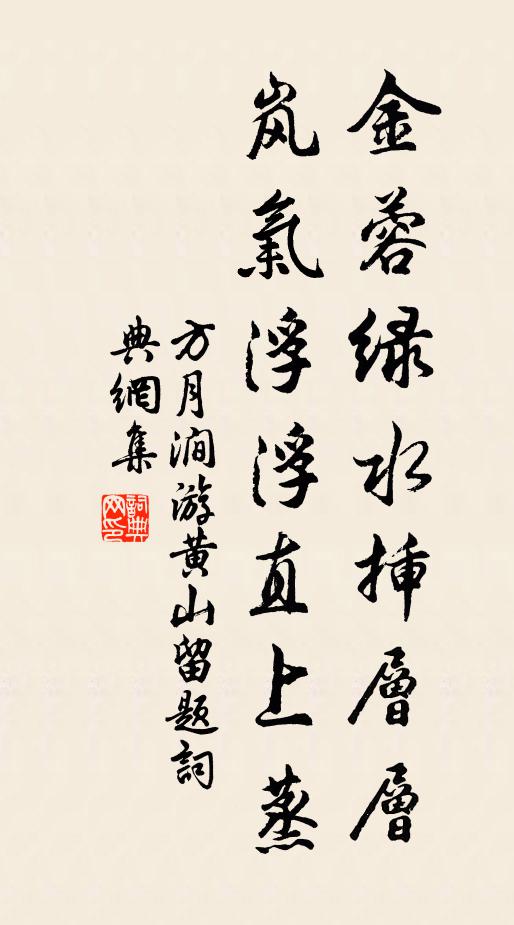 金蓉緑水插層層
嵐氣浮浮直上蒸
方月澗游黄山留題詞
典網集
詞典
网印